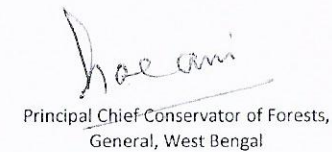 Principal Chief Conservator of Forests,
General, West Bengal